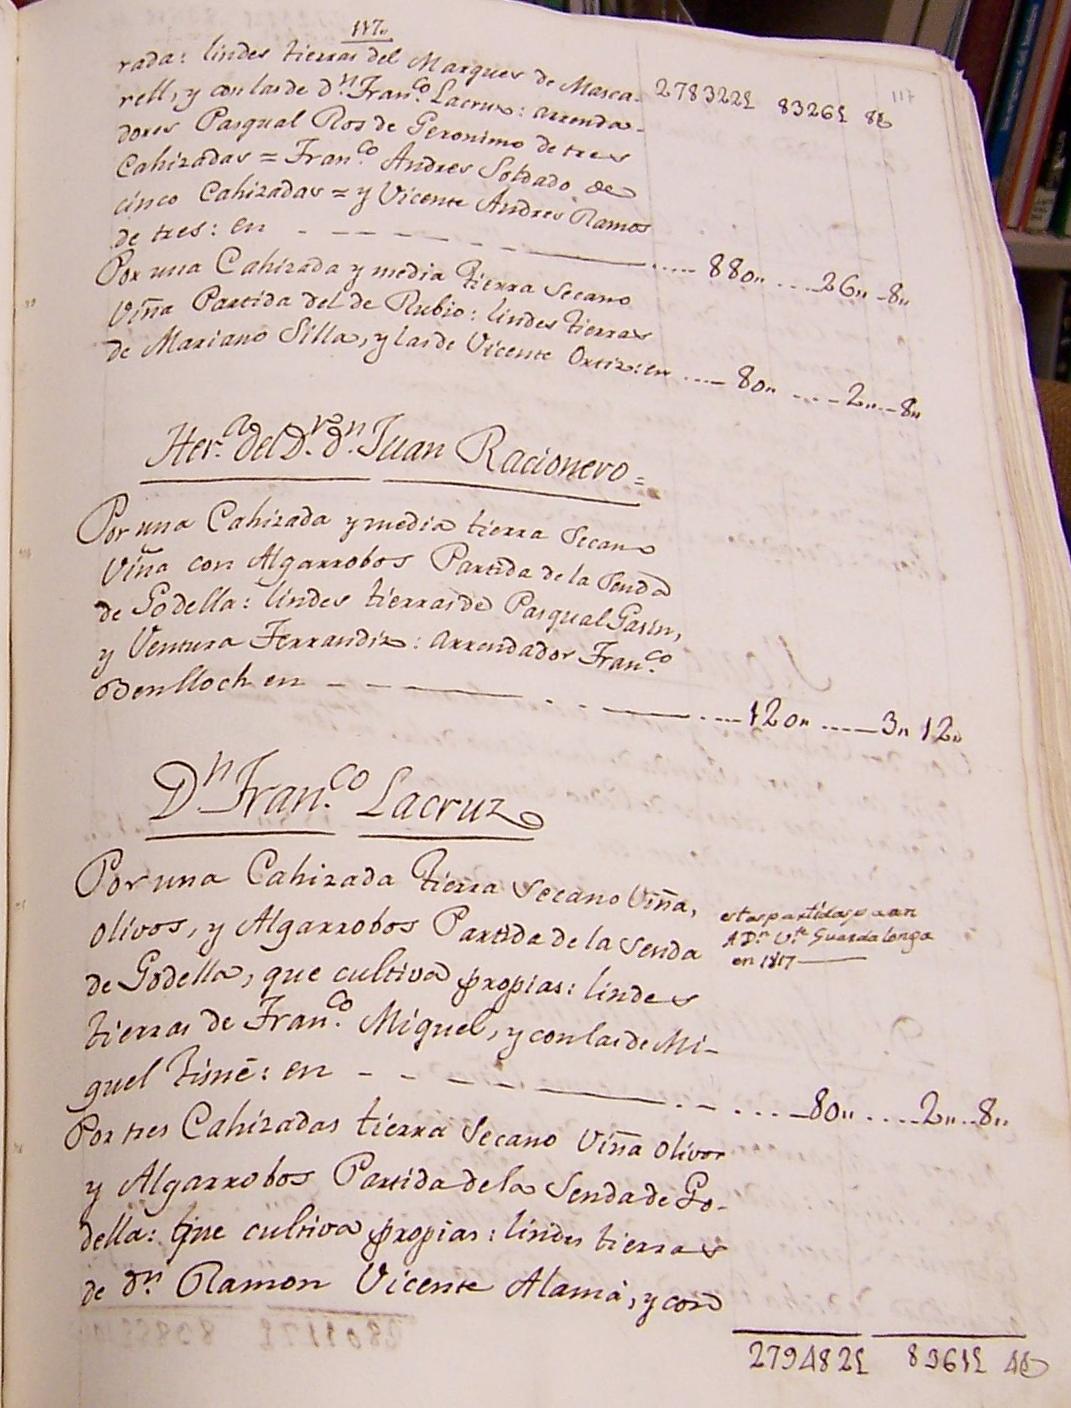 117,,
rada: lindes tierras del Marques de Masca-
rell, y con las de dn. Franco. Lacruz: arrenda-
dores Pasqual Ros de Geronimo de tres
Cahizadas = Franco. Andres Soldado de
cinco Cahizadas = y Vicente Andres Ramos
de tres: en - - - - - - - ..... 880,, .... 26,, - 8,,
278322£ 8326£ 8s
117
Por una Cahizada y media tierra Secano
Viña Partida del de Rubio: lindes tierras
de Mariano Silla, y las de Vicente Ortiz: en .... 80,, .... 2,, ... 8,,
Her.a del Dr. dn. Juan Racionero =
Por una Cahizada y media tierra Secano
Viña con Algarrobos Partida de la Senda
de Godella: lindes tierras de Pasqual Gasin,
y Ventura Ferrandiz: arrendador Franco.
Benlloch en - - - - - ..... 120,, ..... 3,, 12,,
Dn. Franco. Lacruz
Por una Cahizada tierra Secano Viña,
olivos, y Algarrobos Partida de la Senda
de Godella, que cultiva propias: lindes
tierras de Franco. Miguel, y con las de Mi-
guel Timē: en - - - - - ..... 80,, .... 2,, ... 8,,
estas partidas pasan
A Dn. Vte. Guardalonga
en 1817
Por tres Cahizadas tierra Secano Viña olivos
y Algarrobos Partida de la Senda de Go-
della: que cultiva propias: lindes tierras
de dn. Ramon Vicente Alamá, y con
279482£ 8361£ 4s